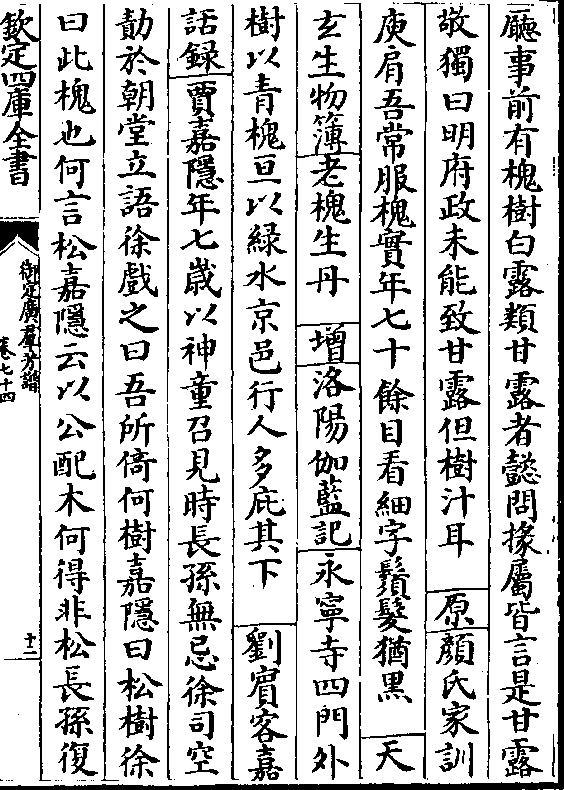 廳事前有槐樹白露類甘露者懿問掾屬皆言是甘露
敬獨曰明府政未能致甘露但樹汁耳　原顔氏家訓
庾肩吾常服槐實年七十餘目看細字鬚髮猶黑　天
玄生物簿老槐生丹　增洛陽伽藍記永寧寺四門外
樹以青槐亘以綠水京邑行人多庇其下　劉賓客嘉
話録賈嘉隱年七歲以神童召見時長孫無忌徐司空
勣於朝堂立語徐戲之曰吾所倚何樹嘉隱曰松樹徐
曰此槐也何言松嘉隱云以公配木何得非松長孫復
欽定四庫全書
御定廣羣芳譜
卷七十四
十二